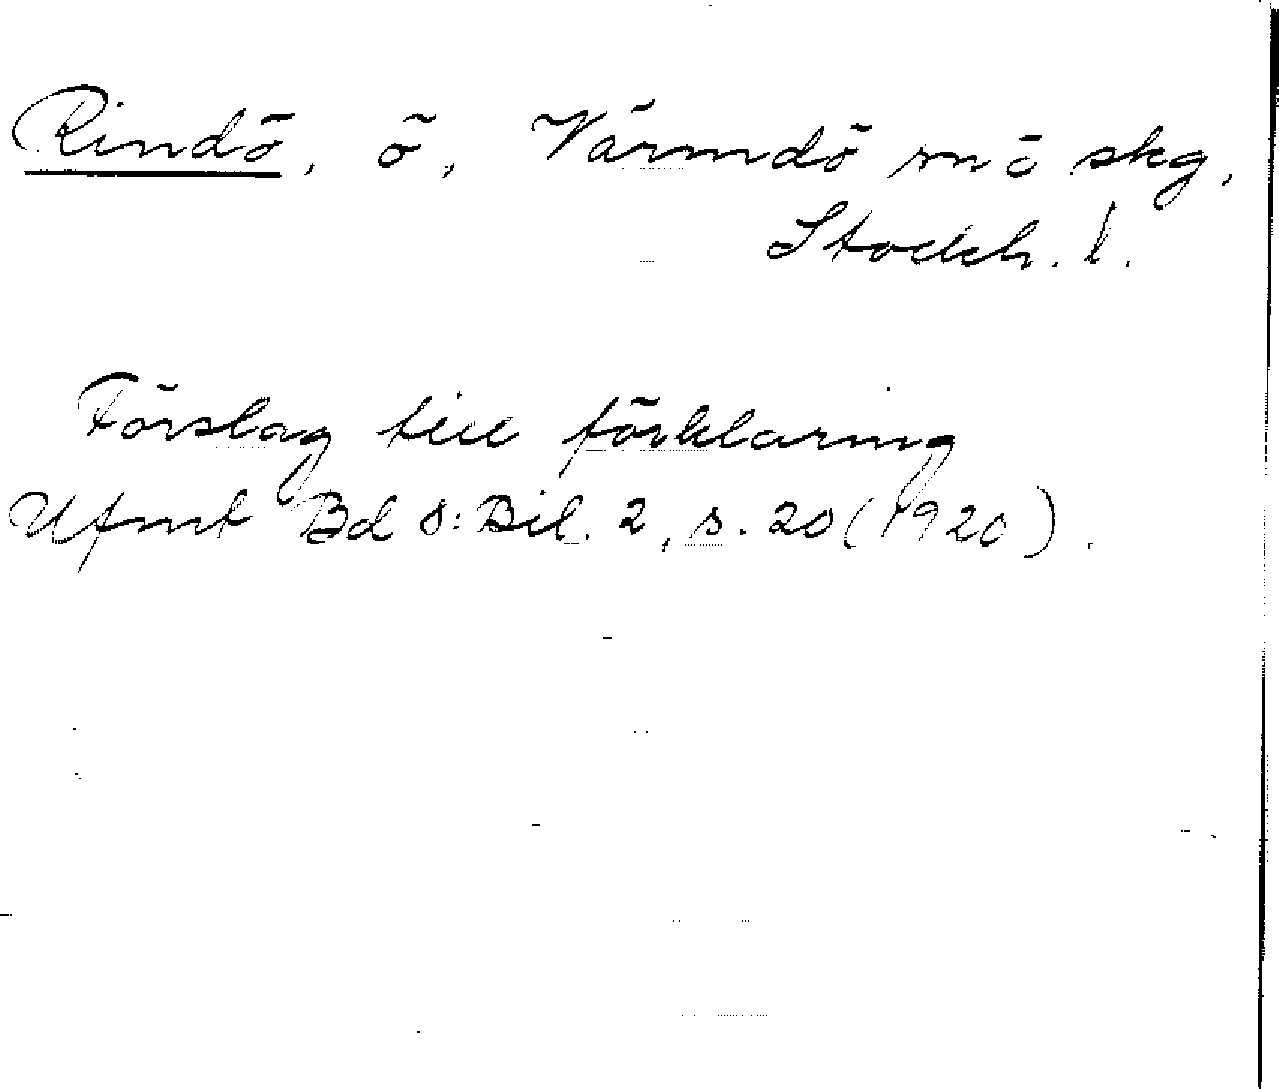 Rindö, ö, Värmdö sn o skg,
Stockh. l.
Förslag till förklaring
Ufmt Bd 8: Bil. 2, s. 20 (1920).